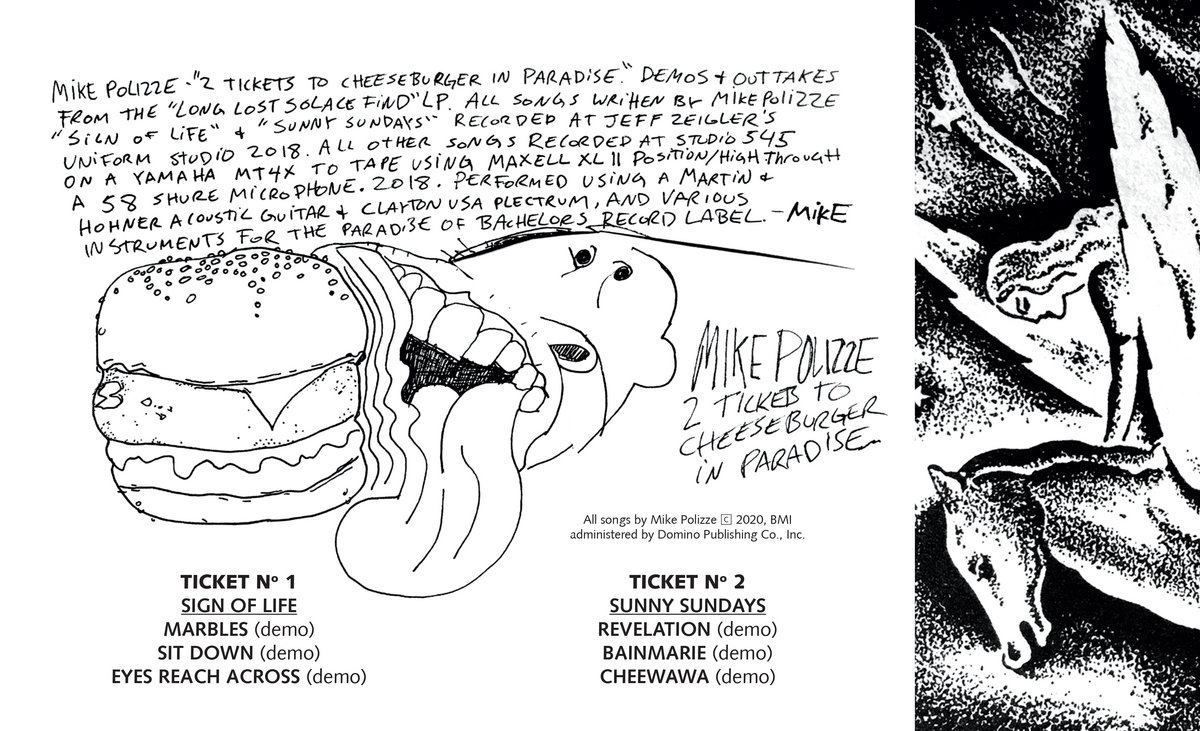 MIKE POLIZZE - "2 TICKETS TO CHEESEBURGER IN PARADISE." DEMOS + OUTTAKES
FROM THE "LONG LOST SOLACE FIND" LP. ALL SONGS WRITTEN BY MIKE POLIZZE
"SIGN OF LIFE" + "SUNNY SUNDAYS" RECORDED AT JEFF ZEIGLER'S
UNIFORM STUDIO 2018. ALL OTHER SONGS RECORDED AT STUDIO 545
ON A YAMAHA MT4X TO TAPE USING MAXELL XL II POSITION/HIGH THROUGH
A 58 SHURE MICROPHONE. 2018. PERFORMED USING A MARTIN +
HOHNER ACOUSTIC GUITAR + CLAYTON USA PLECTRUM, AND VARIOUS
INSTRUMENTS FOR THE PARADISE OF BACHELORS RECORD LABEL. - MIKE
MIKE POLIZZE
2 TICKETS TO
CHEESEBURGER
IN PARADISE
All songs by Mike Polizze 🄫 2020, BMI
administered by Domino Publishing Co., Inc.
TICKET Nº 1
SIGN OF LIFE
MARBLES (demo)
SIT DOWN (demo)
EYES REACH ACROSS (demo)
TICKET Nº 2
SUNNY SUNDAYS
REVELATION (demo)
BAINMARIE (demo)
CHEEWAWA (demo)